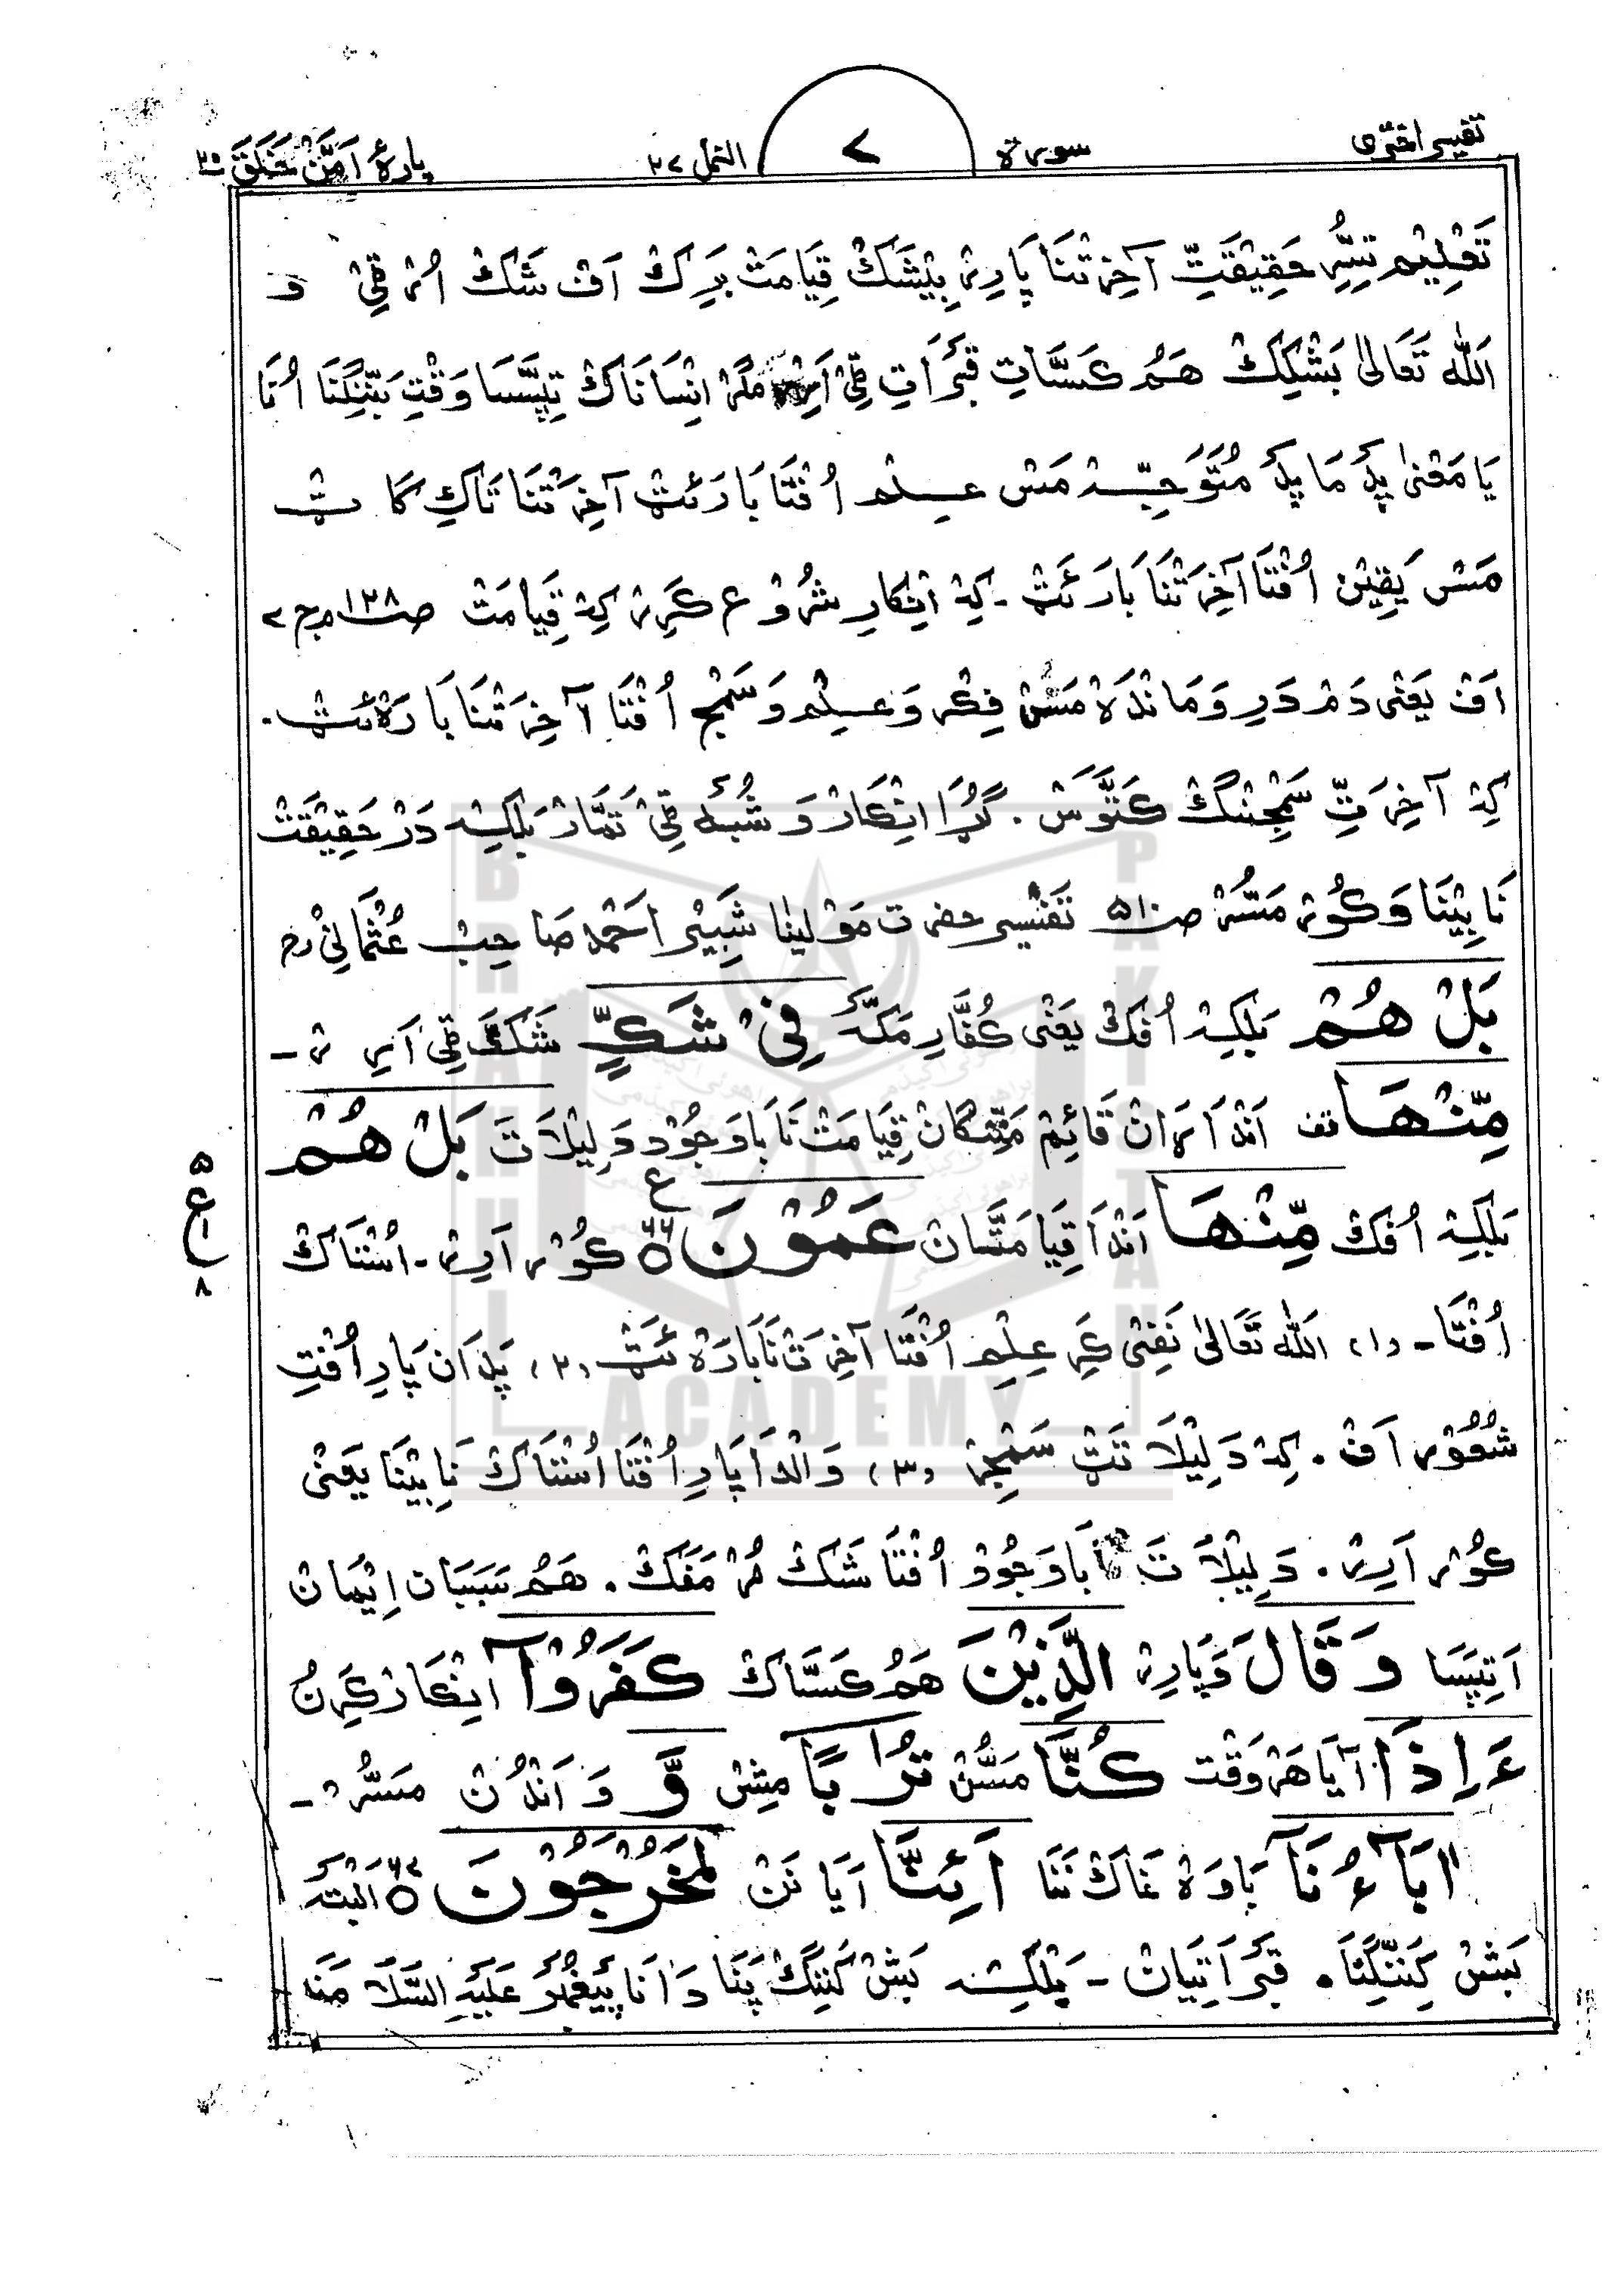 تفسیر اختری سورة ۷ النمل ۲۷ پارۀ اَمَّنْ خَلَقَ ۲۰
تَعْلِیْم تِسِّرِ حَقِیْقَتِّ آخِرَتْنَا پَارِہْ بِیْشَکْ قِیَامَتْ بَرِکْ اَفْ شَکْ اُسْ ٹِیْ وَ
اَللّٰہ تَعَالیٰ بَشْکِکْ ہَمُ کَسَّاتِ قَبَرَاتِ ٹِیْ اَرِہْ مَگَرْ اِنْسَانَاکْ تِپَّسَا وَقْتِ بَشِّنِگَنَا اُنَا
یَا مَعْنیٰ پِدْ مَا پِدْ مُتَوَجِّہْ مَسْ عِلْم اُفْتَا بَارَئَٹْ آخِرَتْنَا تَاکِ کَا
مَسْ یَقِیْن اُفْتَا آخِرَتْنَا بَارَئَٹْ - کِہْ اِنْکَارِ شُرُوْع کَرِہْ کِہْ قِیَامَتْ صـ۱۳۸ ج ۷
اَفْ یَعْنٰی دَمْ دَرِ وَمَانْدَہْ مَسْ فِکْر وَعِلْم وَسَمْج اُفْتَا آخِرَتْنَا بَارَہْ ئَٹْ۔
کِہْ آخِرَتِّ سَمْجِنْگْ کَتَّوَسْ۔ گُڑَا اِنْکَارْ وَ شُبَہ ٹِیْ تَمَّارْ بَلْکِہ دَرْ حَقِیْقَتْ
نَابِیْنَا وَ کُوْر مَسُّرْ صـ۵۱۰ تَفْسِیر حضرت مَوْلٰینا شَبِیْر اَحْمَد صَاحِبْ عُثْمَانِیْ رح
بَلْ هُمْ بَلْکِہ اُفْکْ یَعْنٰی کُفَّارِ مَکَّہ فِیْ شَکٍّ شَکَّ ٹِیْ اَرِہْ -
مِّنْهَا اَنْدَارَانْ قَائِمْ مَنِّنْگَانْ قِیَامَتْ نَا بَاوَجُوْد دَلِیْلَاتَ بَلْ هُمْ
بَلْکِہ اُفْکْ مِّنْهَا اَنْدَا قِیَامَتَّان عَمُوْنَ ۶۶ ع کُوْر اَرِہْ - اُسْتَاکْ
اُفْتَا - (۱) اَللّٰہ تَعَالیٰ نَفِیْ کَرِ عِلْمِ اُفْتَا آخِرَتْنَا بَارَہْ ئَٹْ (۲) پِدَان پَارِ اُفْتِ
شُعُوْر اَفْ۔ کِہْ دَلِیْلَاتَتِّ سَمْجِرْ (۳) وَالْدَا پَارِ اُفْتَا اُسْتَاکْ نَابِیْنَا یَعْنٰی
کُوْر اَرِہْ۔ دَلِیْلَاتَ بَاوَجُوْد اُفْتَا شَکْ مُرْ مَفَکْ۔ ہَمُ سَبَبَان اِیْمَانْ
اَتِپَسَا وَقَالَ وَپَارِہْ الَّذِیْنَ ہَمُ کَسَّاکْ کَفَرُوْٓا اِنْکَارْ کَرِہْ
ءَاِذَا آیَا ہَرْ وَقْت کُنَّا مَسُّنْ تُرٰبًا مِشْ وَّ وَ اَنْدُنْ مَسُّرْ -
اٰبَآؤُنَآ بَاوَہْ غَاکْ نَنَا اَئِنَّا آیَا نَنْ لَمُخْرَجُوْنَ ۶۷ البتہ
بَشْ کَنِنْگِنَا۔ قَبَرَاتِیَان - بَلْکِہ بَشْ کَنِنْگْ نَنَا دَانَا پَیْغَمْبَر عَلَیْہِ السَّلَام نَہ
۵
ع
۱
۸
BRAHUI ACADEMY PAKISTAN